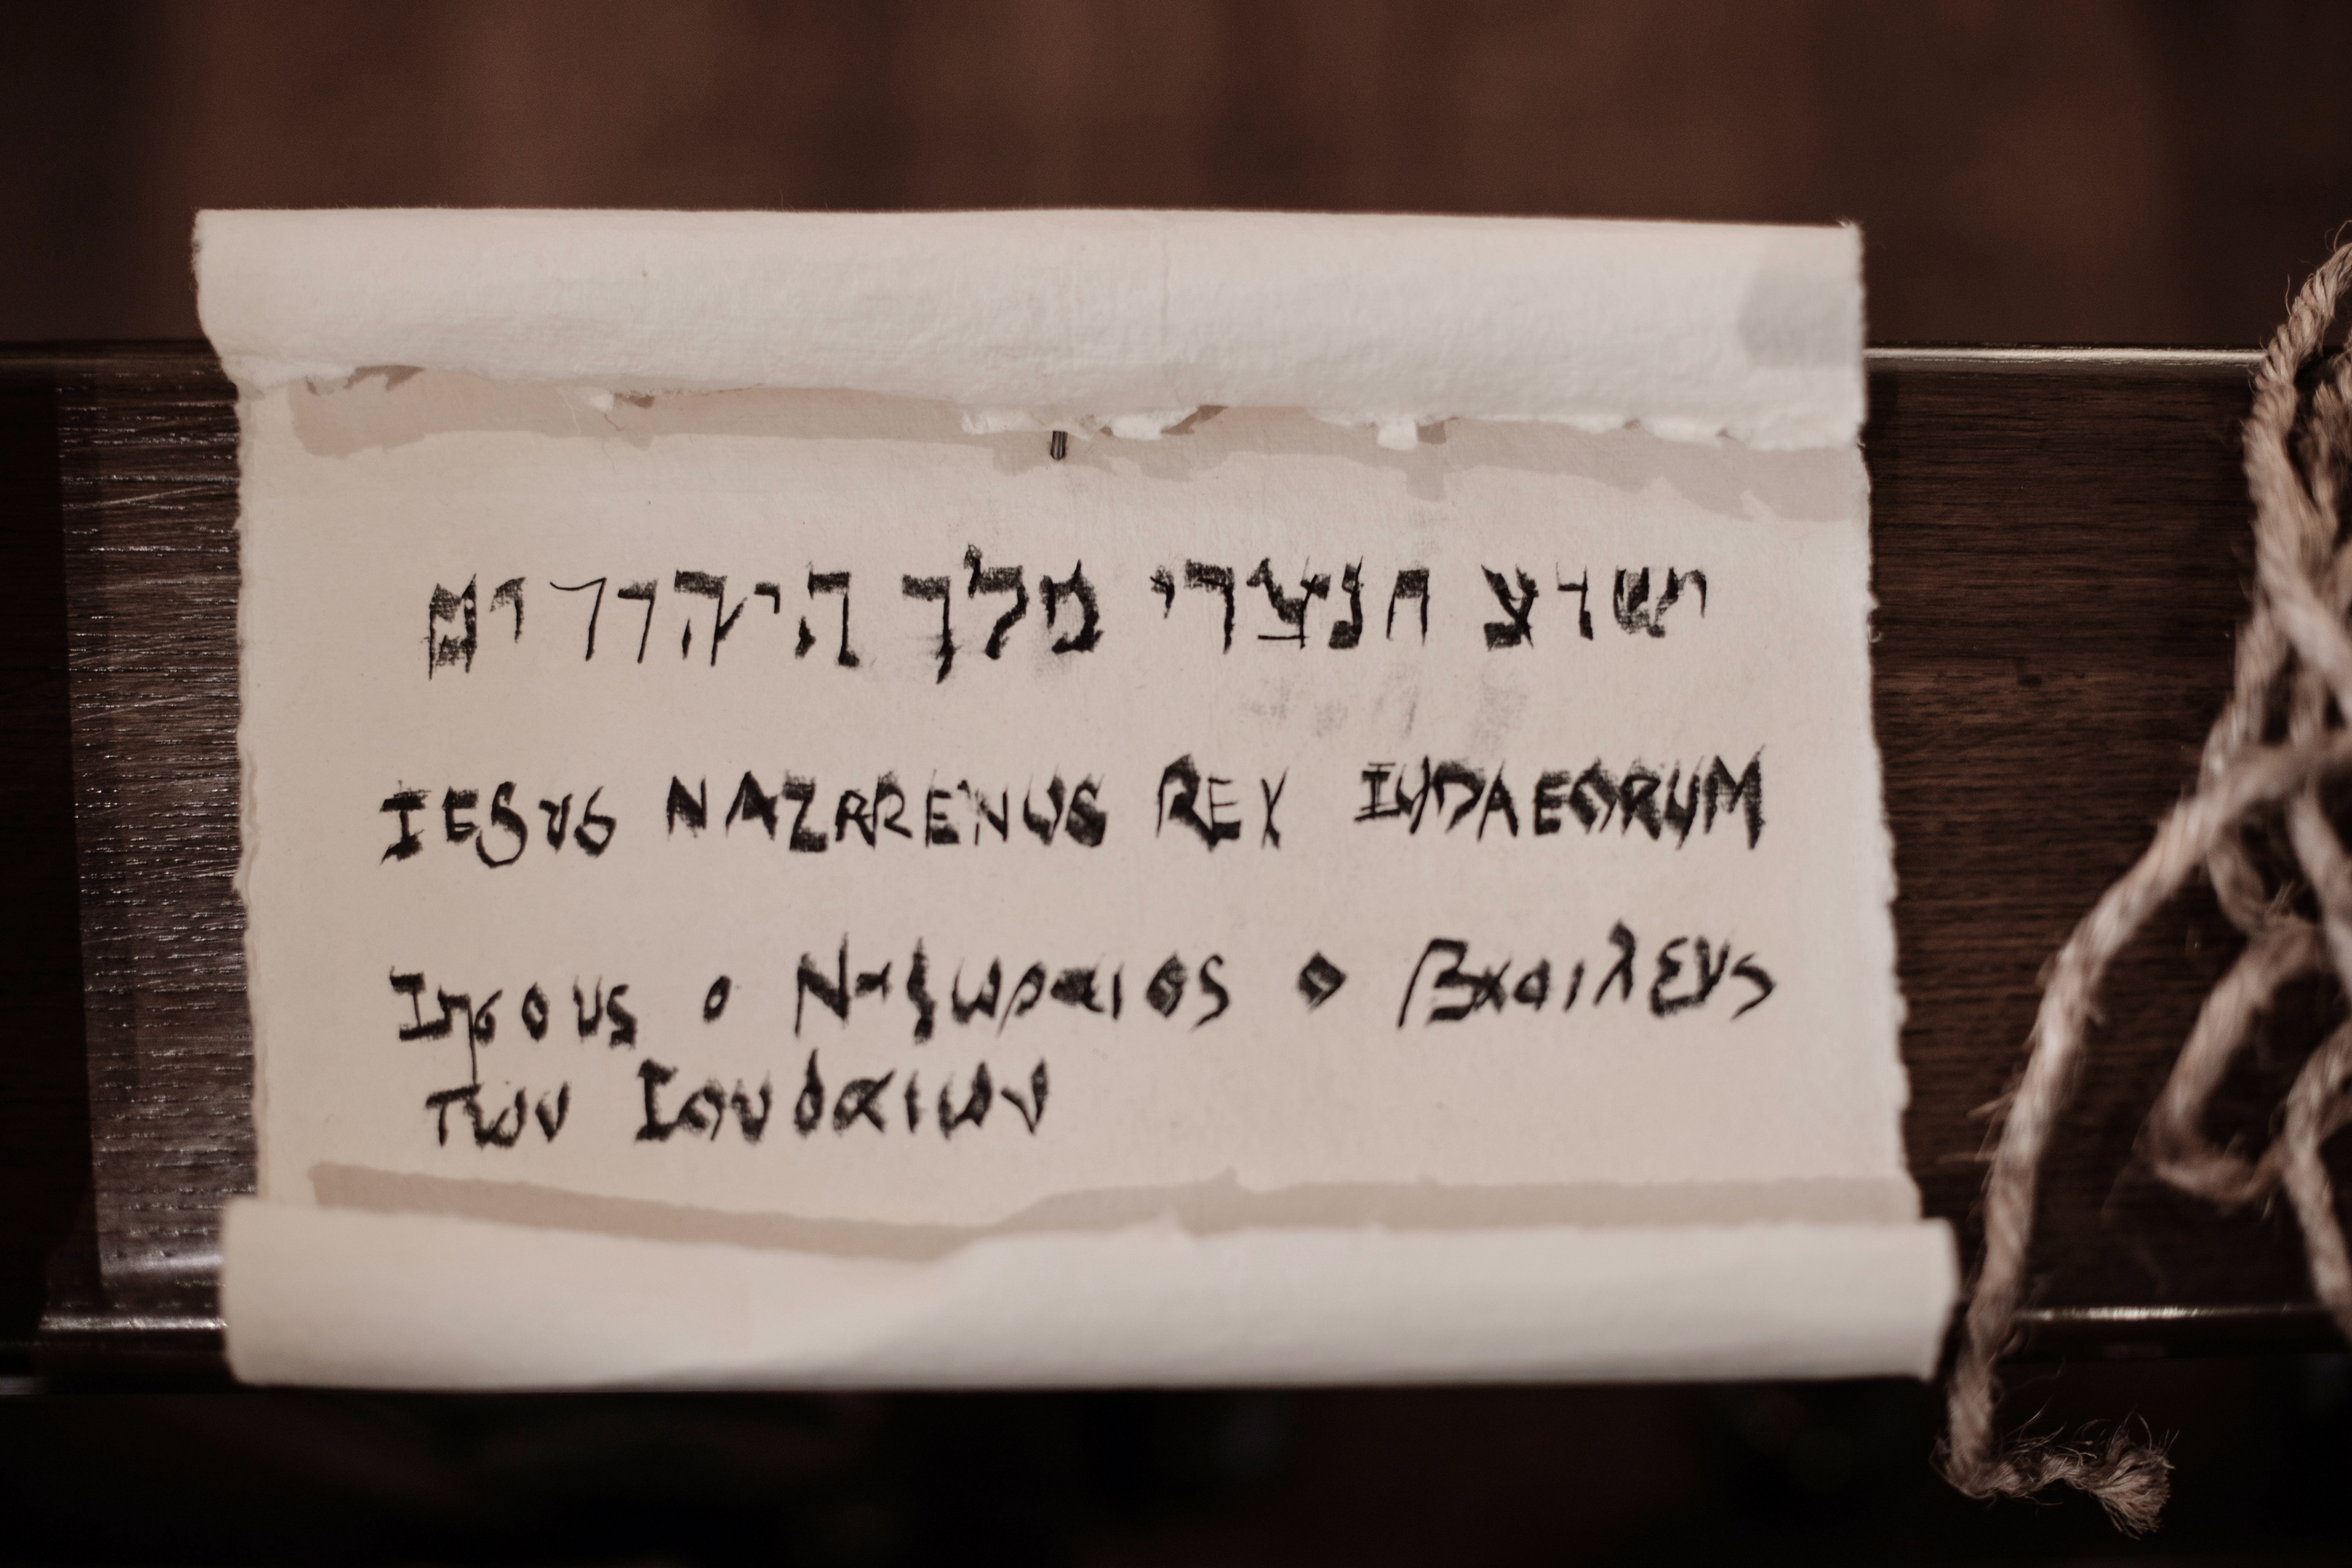 ישוע הנצרי מלך היהודים
IESUS NAZARENUS REX IUDAEORUM
Ιησους ο Ναζωραιος ο Βασιλευς
των Ιουδαιων